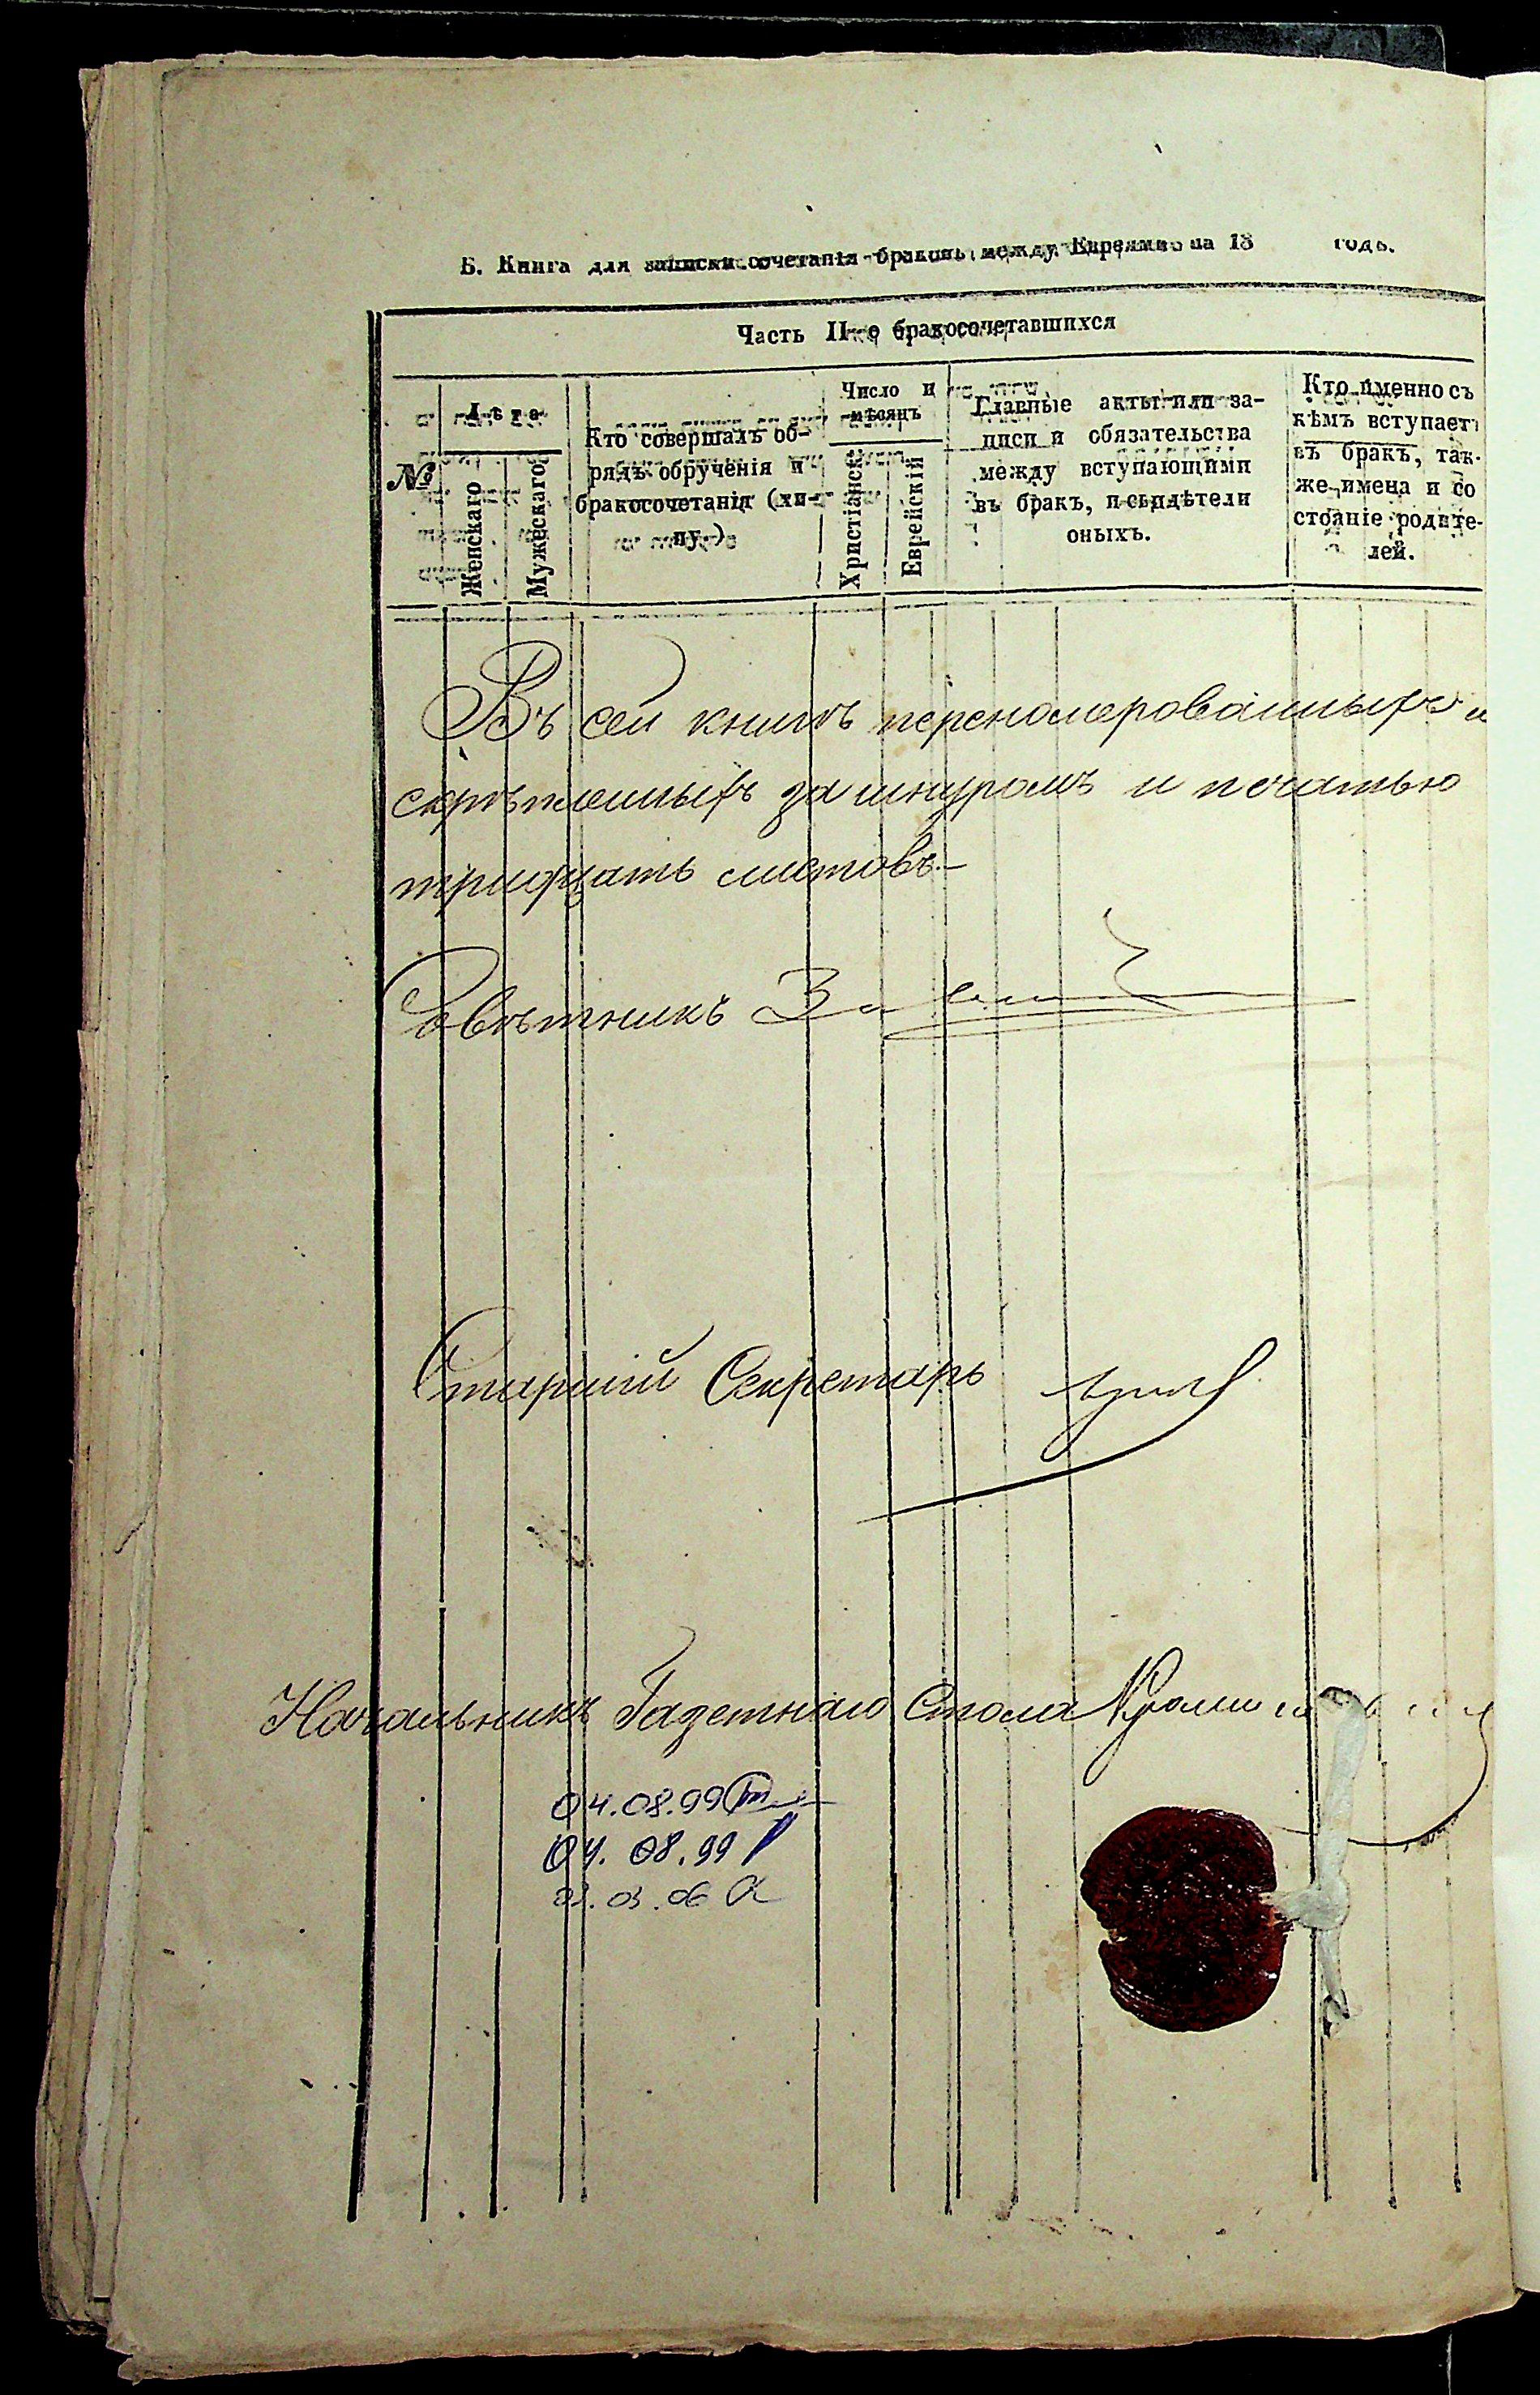 Б. Книга для записки сочетанія браковъ между Евреями на 18 годъ.
Часть II-о бракосочетавшихся
№
Лѣта
Женскаго
Мужескаго
Кто совершалъ об-
рядъ обрученія и
бракосочетанія (хи-
пу)
Число и
мѣсяцъ
Христіанскій
Еврейскій
Главные акты или за-
писи и обязательства
между вступающими
въ бракъ, и свидѣтели
оныхъ.
Кто именно съ
кѣмъ вступаетъ
въ бракъ, так-
же имена и со
стояніе родите-
лей.
Въ сей книгѣ переномерованныхъ и
скрѣпленныхъ за шнуромъ и печатью
тридцать листовъ.—
Совѣтникъ
Старшій Секретарь
Начальникъ Газетнаго Стола
04.08.99
04.08.99
03.06